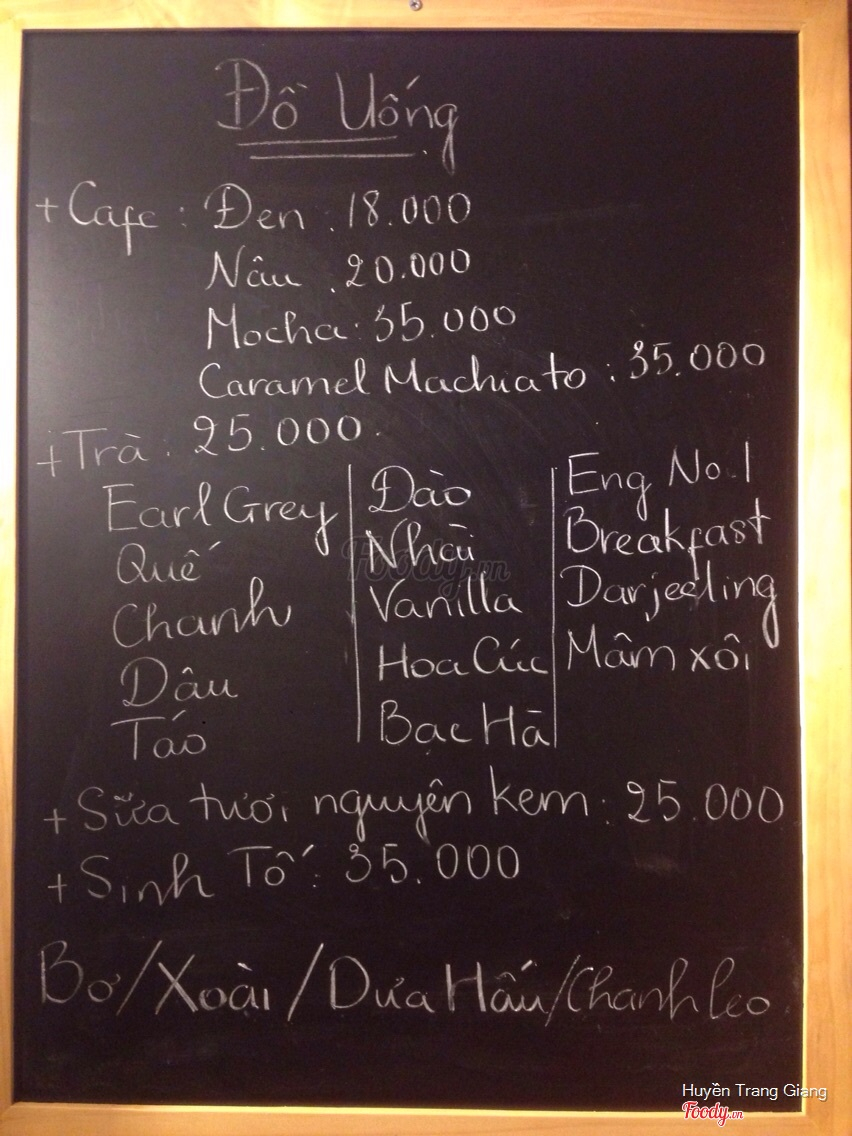 Đồ Uống
+ Cafe : Đen : 18.000
Nâu : 20.000
Mocha : 35.000
Caramel Machiato : 35.000
+ Trà : 25.000
Earl Grey
Quế
Chanh
Dâu
Táo
Đào
Nhài
Vanilla
Hoa Cúc
Bạc Hà
Eng No.1
Breakfast
Darjeeling
Mâm xôi
+ Sữa tươi nguyên kem : 25.000
+ Sinh Tố : 35.000
Bơ / Xoài / Dưa Hấu / Chanh leo
Foody.vn
Huyền Trang Giang
Foody.vn